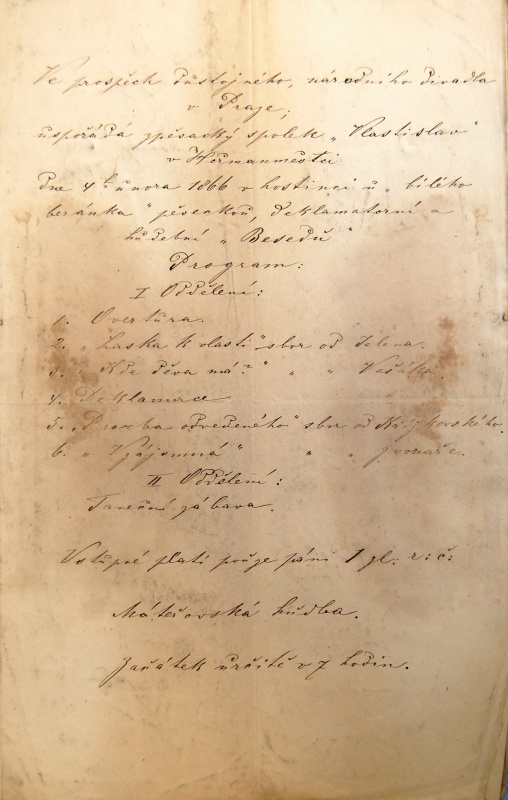 Ve prospěch důstojného, národního divadla
v Praze,
uspořádá zpěvacký spolek „Vlastislav"
v Heřmanměstci
dne 4ho února 1866 v hostinci u „bílého
beránka" pěveckou, deklamatorní a
hudební „Besedu"
Program:
I Oddělení:
1. Overtura.
2. „Láska k vlasti" sbor od Jelena.
3. „Kde děva má?" „ „ Vašáka.
4. Deklamace
5. „Prozba odvedeného" sbor od Křížkovského.
6. „Vzájomná" „ „ Zvonaře.
II Oddělení:
Taneční zábava.
Vstupné platí pouze páni 1 zl. r: č:
hudba.
Začátek určitě v 7 hodin.